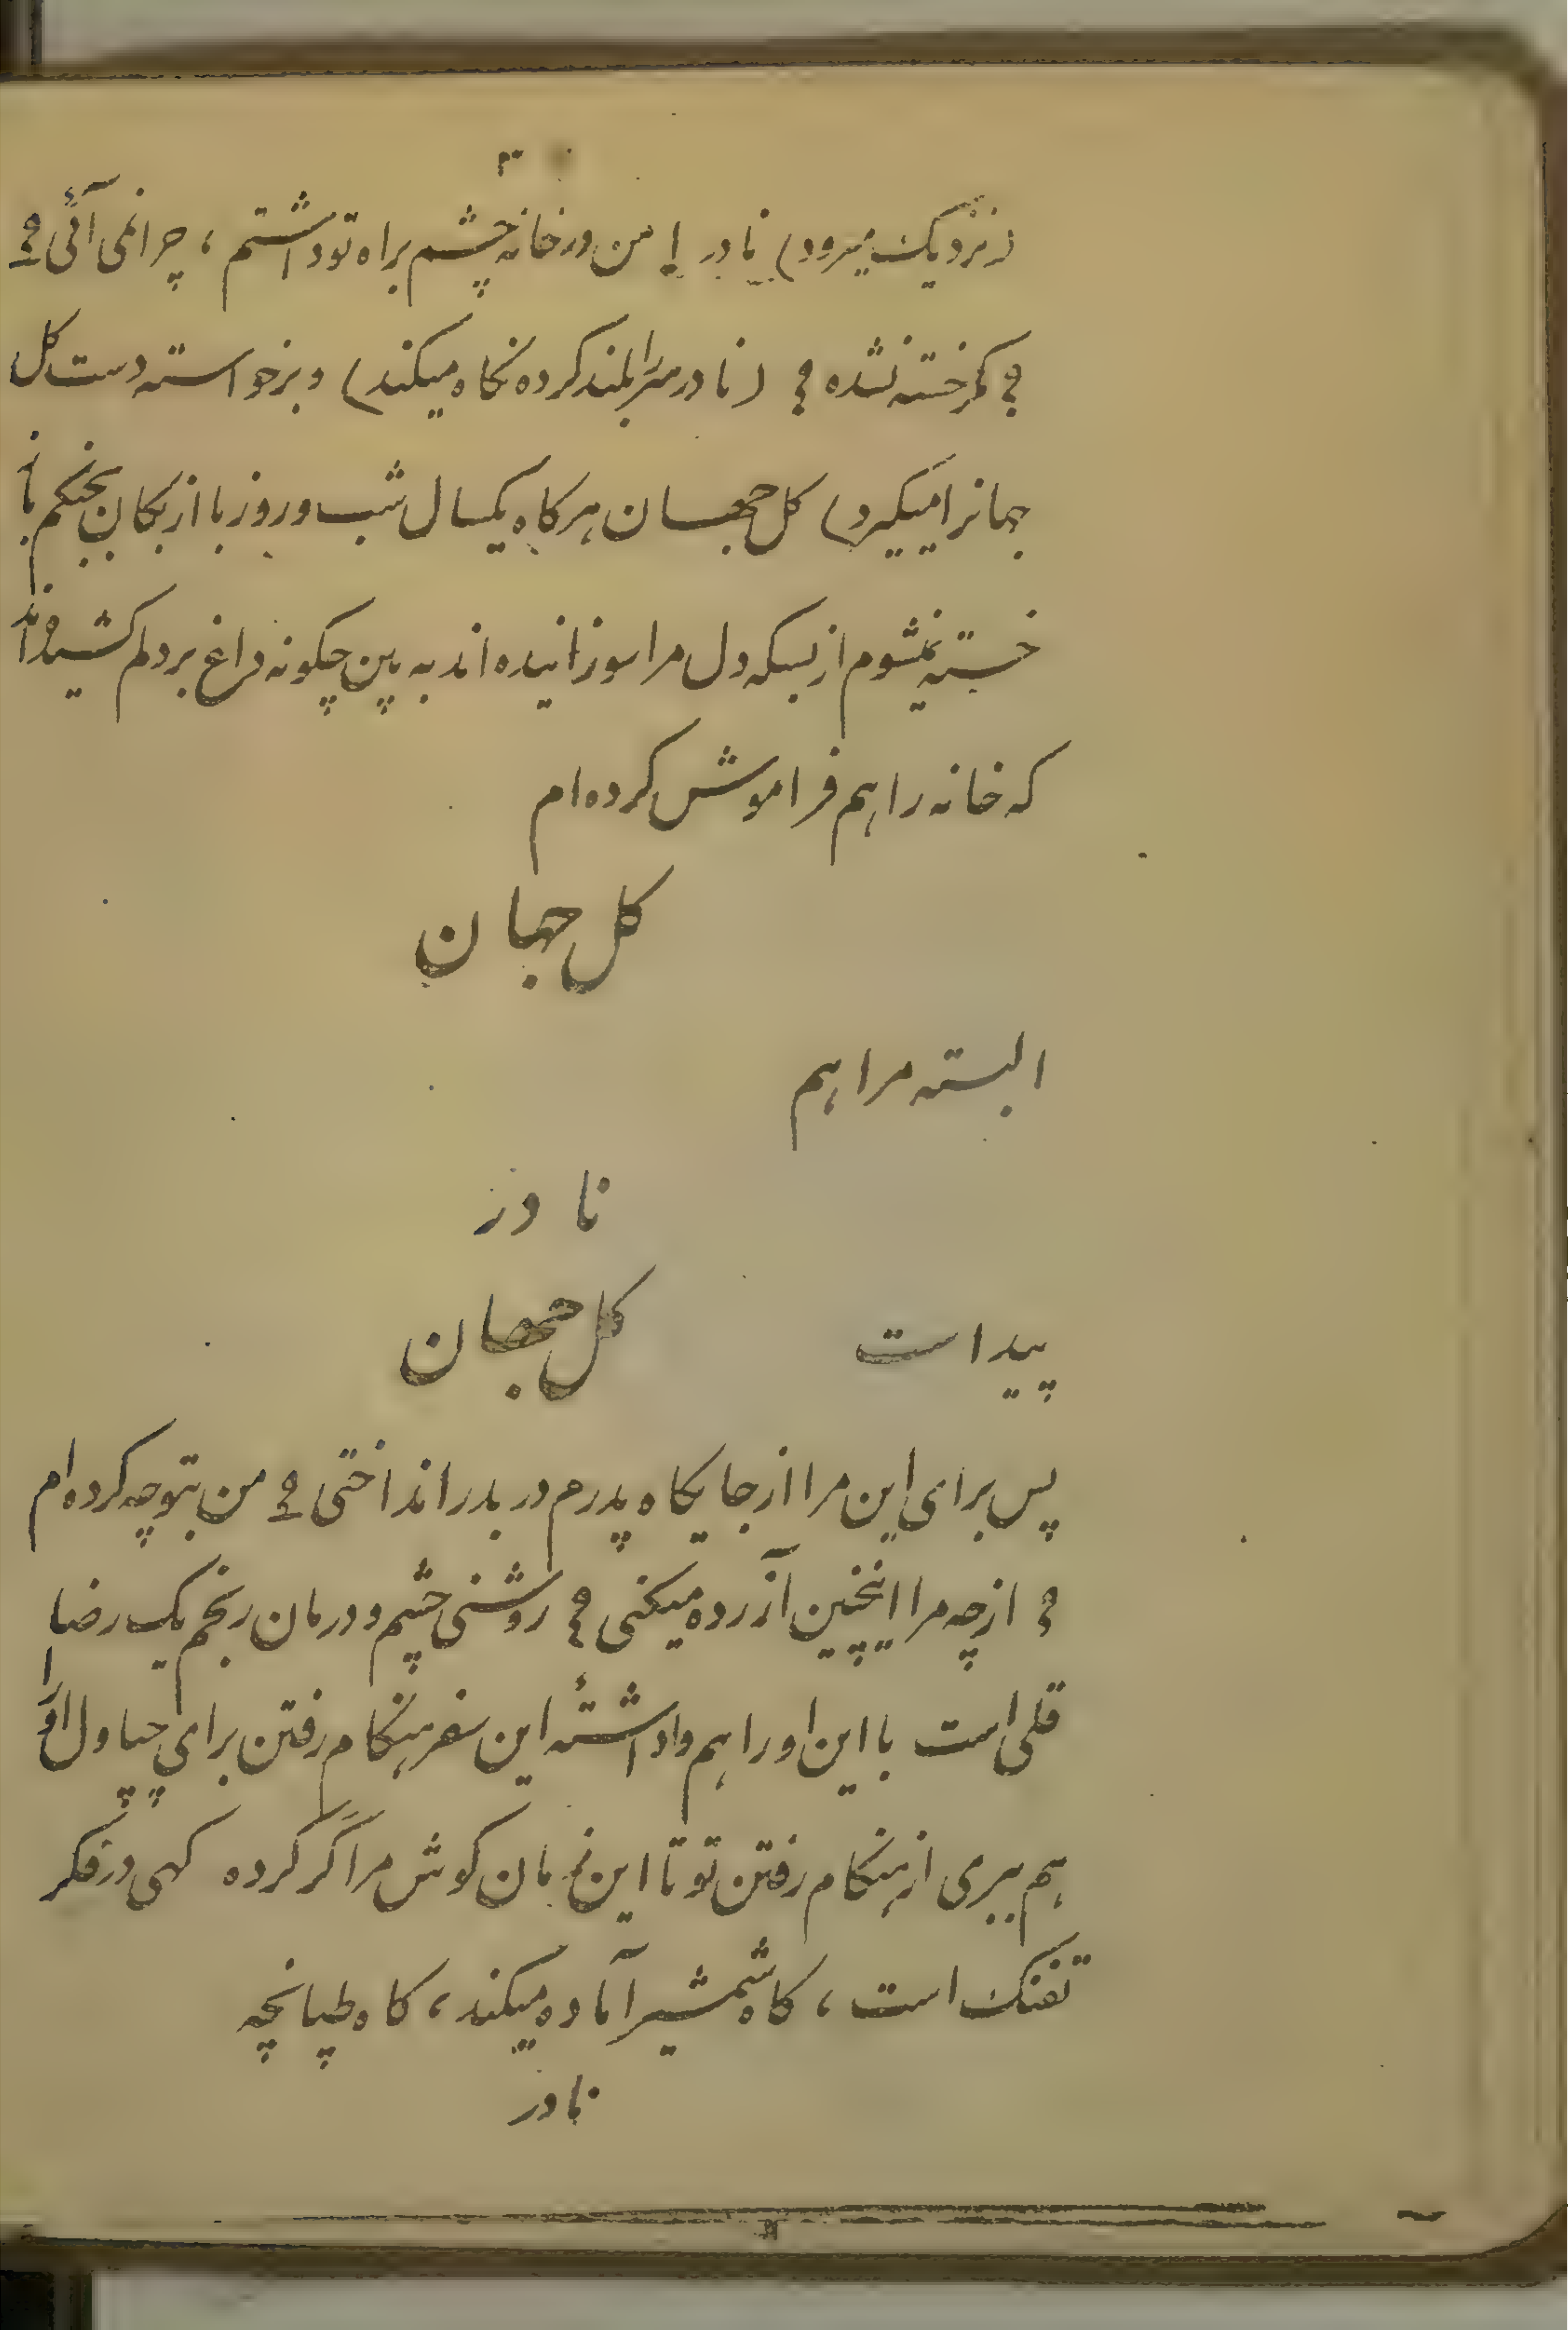 ۳
(نزدیک میرود) نادر ! من در خانه چشم براه تو داشتم ، چرا نمی آئی ؟
؟ مگر خسته نشده ؟ (نادر سر را بلند کرده نکاه میکند) و برخواسته دست کل
جهانرا میکیرد) کل جهان هرکاه یکسال شب و روز با ازبکان بجنکم باز
خسته نمیشوم از بسکه دل مرا سوزانیده اند به بین چکونه داغ بر دلم کشیده اند
که خانه را هم فراموش کرده ام
کل جهان
البته مرا هم
نادر
پیداست کل جهان
پس برای این مرا از جایکاه پدرم در بدر انداختی ؟ من بتو چه کرده ام
؟ از چه مرا اینچنین آزرده میکنی ؟ روشنی چشم و درمان رنجم یک رضا
قلی است با این او را هم واداشتهٔ این سفر هنکام رفتن برای چپاول او را
هم ببری از هنکام رفتن تو تا این زمان کوش مرا کر کرده کهی در فکر
تفنک است ، کاه شمشیر آماده میکند ، کاه طپانچه
نادر